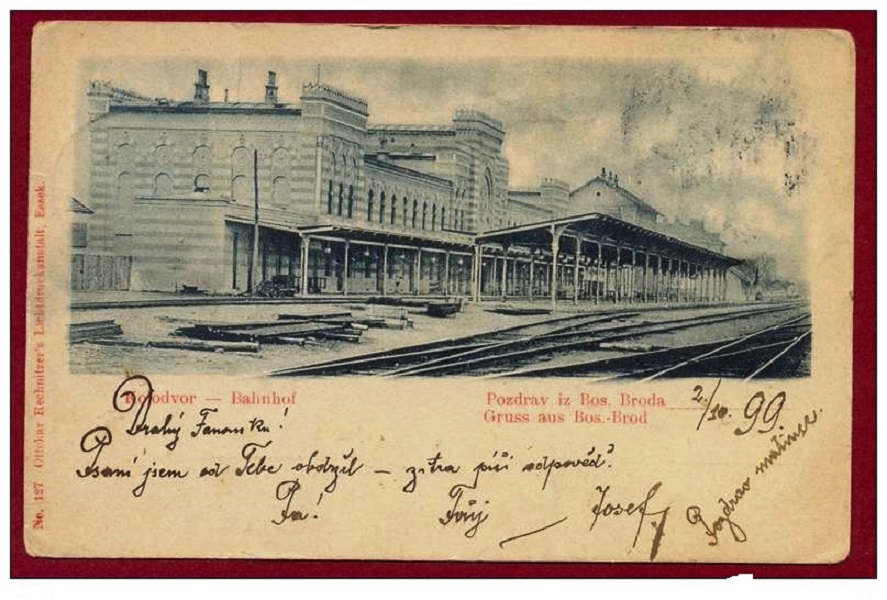 No. 127 Ottokar Rechnitzer's Lichtdruckanstalt, Essek.
Kolodvor — Bahnhof
Pozdrav iz Bos. Broda
Gruss aus Bos.-Brod
2./10. 99.
Drahý
Psaní jsem od Tebe obdržel – zítra píši odpověď.
Pa! Tvůj Josef
Pozdrav matince.